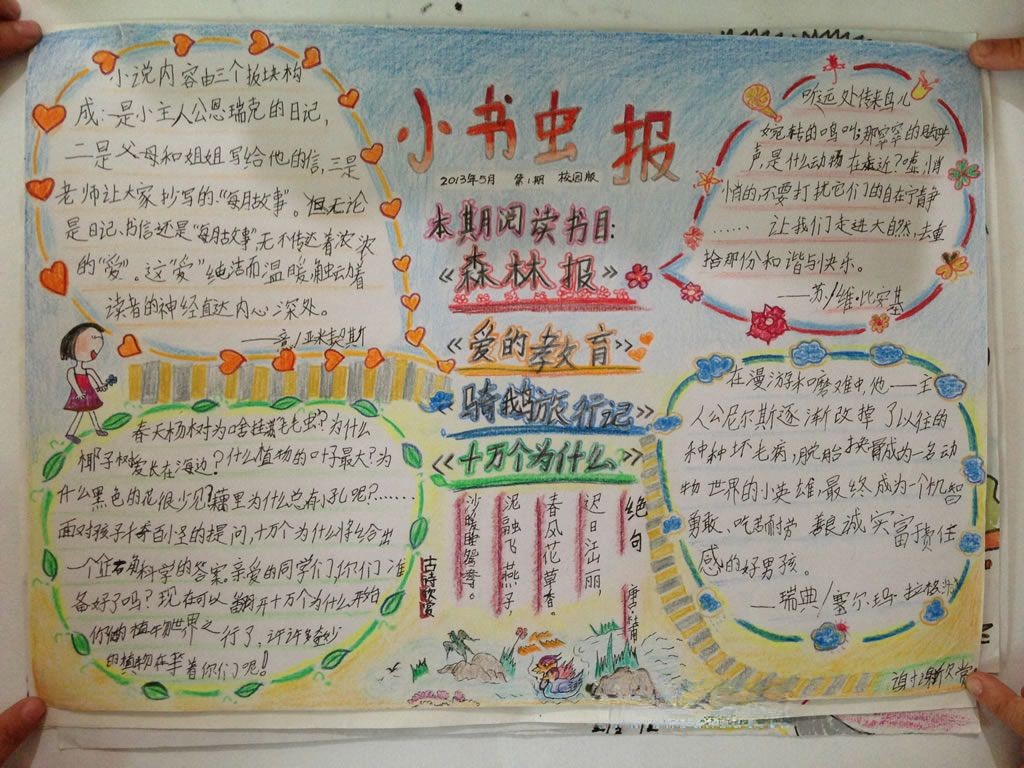 小书虫报
2013年5月 第1期 校园版
本期阅读书目:
《森林报》
《爱的教育》
《骑鹅旅行记》
《十万个为什么》
小说内容由三个板块构
成:一是小主人公恩瑞克的日记,
二是父母和姐姐写给他的信,三是
老师让大家抄写的“每月故事”。但无论
是日记、书信还是“每月故事”无不传达着浓浓
的“爱”。这“爱”纯洁而温暖,触动着
读者的神经直达内心深处。
——意/亚米契斯
听,远处传来鸟儿
婉转的鸣叫;那窣窣的脚步
声,是什么动物在走近?嘘,悄
悄的,不要打扰它们的自在宁静
…… 让我们走进大自然,去重
拾那份和谐与快乐。
——苏/维·比安基
春天杨树为啥挂满毛毛虫?为什么
椰子树爱长在海边?什么植物的叶子最大?为
什么黑色的花很少见?藕里为什么总有小孔呢?……
面对孩子千奇百怪的提问,十万个为什么将给出
一个正确科学的答案。亲爱的同学们,你们准
备好了吗?现在可以翻开十万个为什么,开始
你们的植物世界之行了,许许多多奇妙
的植物在等着你们呢!
在漫游和磨难中,他——主
人公尼尔斯逐渐改掉了以往的
种种坏毛病,脱胎换骨成为一名动
物世界的小英雄,最终成为一个机智
勇敢、吃苦耐劳 善良诚实富责任
感的好男孩。
——瑞典/塞尔·玛·拉格洛
古诗欣赏
绝句
唐·杜甫
迟日江山丽,
春风花草香。
泥融飞燕子,
沙暖睡鸳鸯。